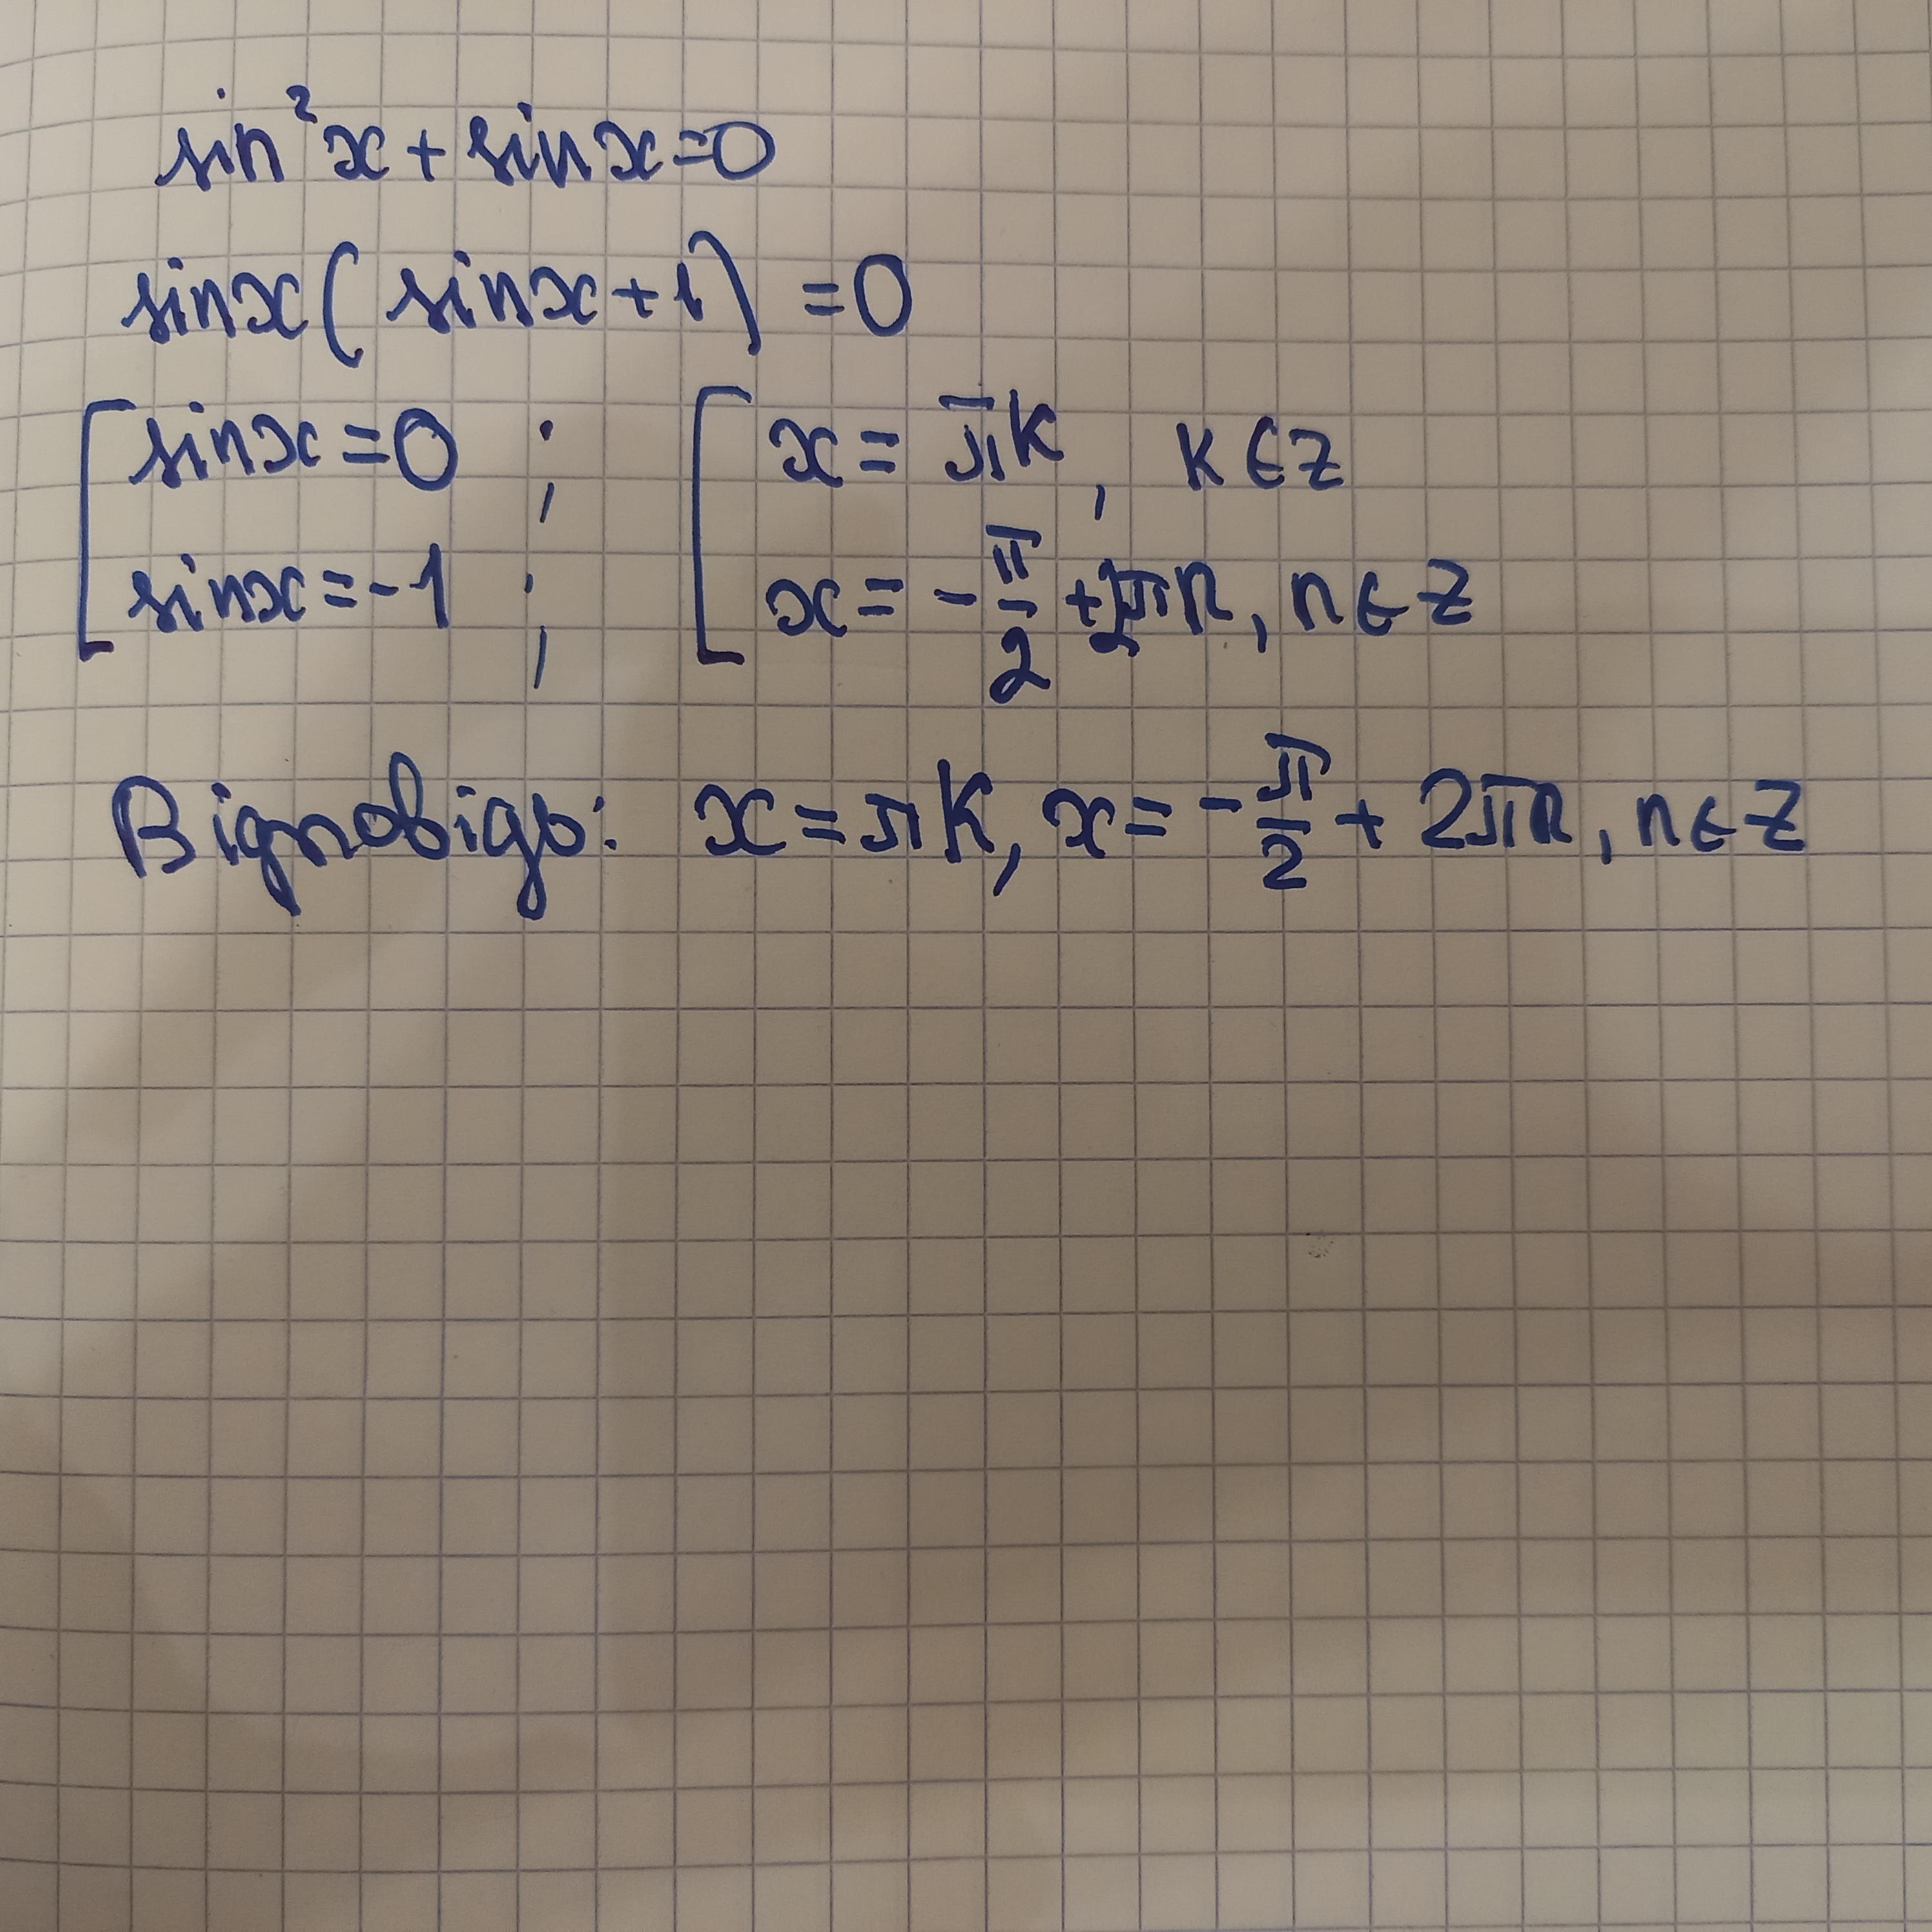 sin²x + sinx = 0
sinx(sinx+1) = 0
[ sinx = 0 ; [ x = πk, k ∈ Z
sinx = -1 ; x = -π/2 + 2πn, n ∈ Z
Відповідь: x = πk, x = -π/2 + 2πn, n ∈ Z